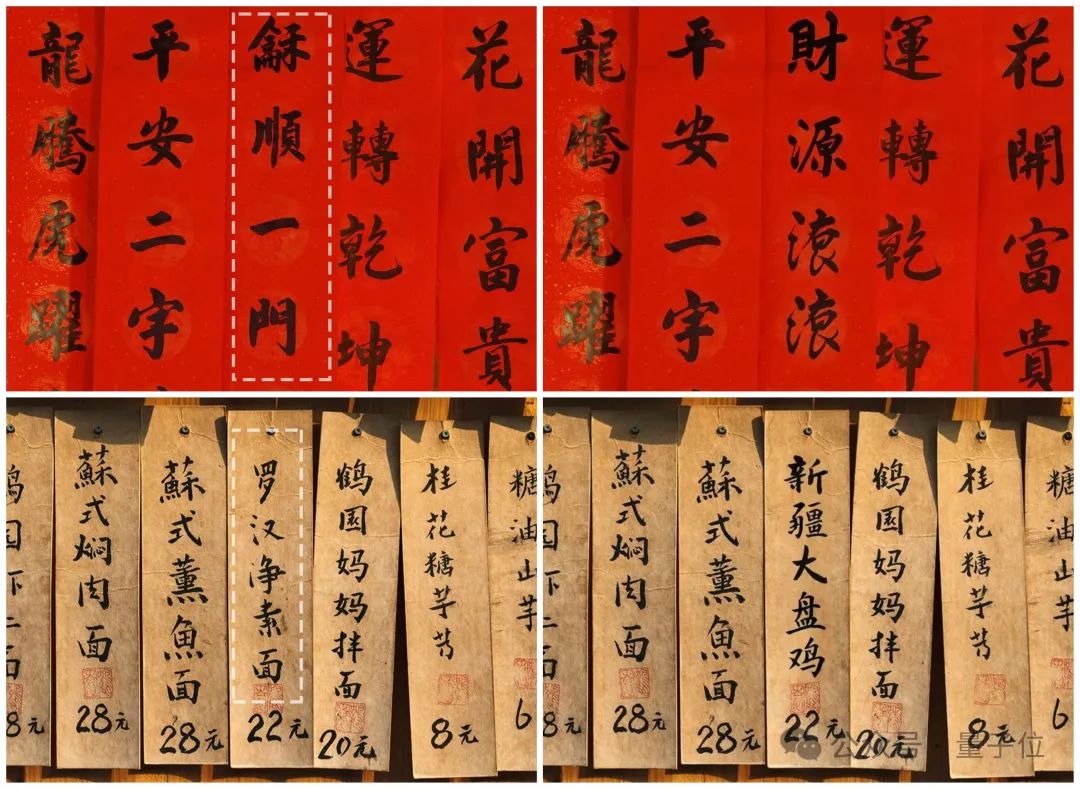 龍騰虎躍
平安二字
龢順一門
運轉乾坤
花開富貴
龍騰虎躍
平安二字
財源滾滾
運轉乾坤
花開富貴
8元
蘇式焖肉面
28元
蘇式薰魚面
28元
罗汉净素面
22元
鹤园妈妈拌面
20元
桂花糖芋艿
8元
糖油山芋
6
8元
蘇式焖肉面
28元
蘇式薰魚面
28元
新疆大盘鸡
22元
鹤园妈妈拌面
20元
桂花糖芋艿
8元
糖油山芋
6
公众号 量子位